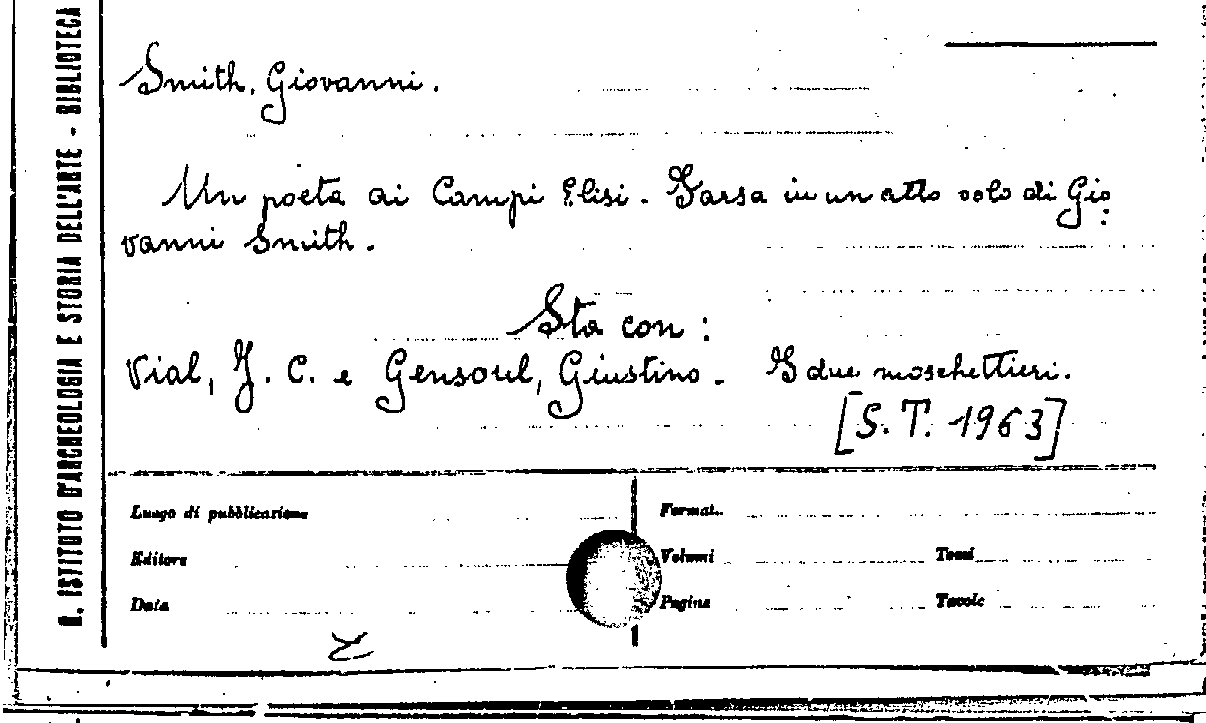 R. ISTITUTO D'ARCHEOLOGIA E STORIA DELL'ARTE - BIBLIOTECA
Smith, Giovanni.
Un poeta ai Campi Elisi. Farsa in un atto solo di Gio:
vanni Smith.
Sta con:
Vial, J. C. e Gensoul, Giustino. I due moschettieri.
[S. T. 1963]
Luogo di pubblicazione
Format..
Editore
Volumi
Tomi
Data
Pagine
Tavole